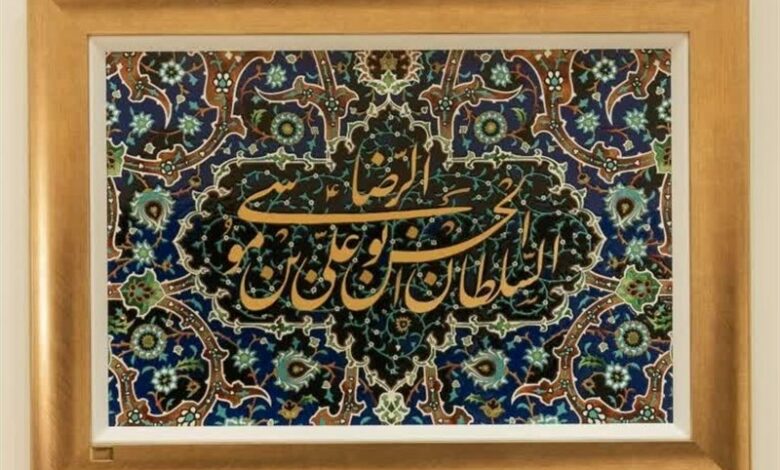 السلطان ابوالحسن علی بن موسی الرضا ع